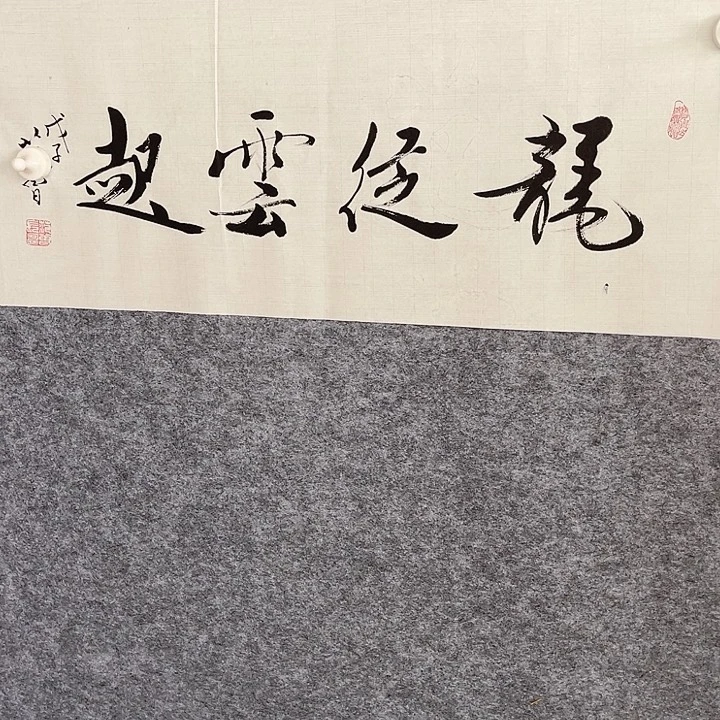 龍從雲起
戊子